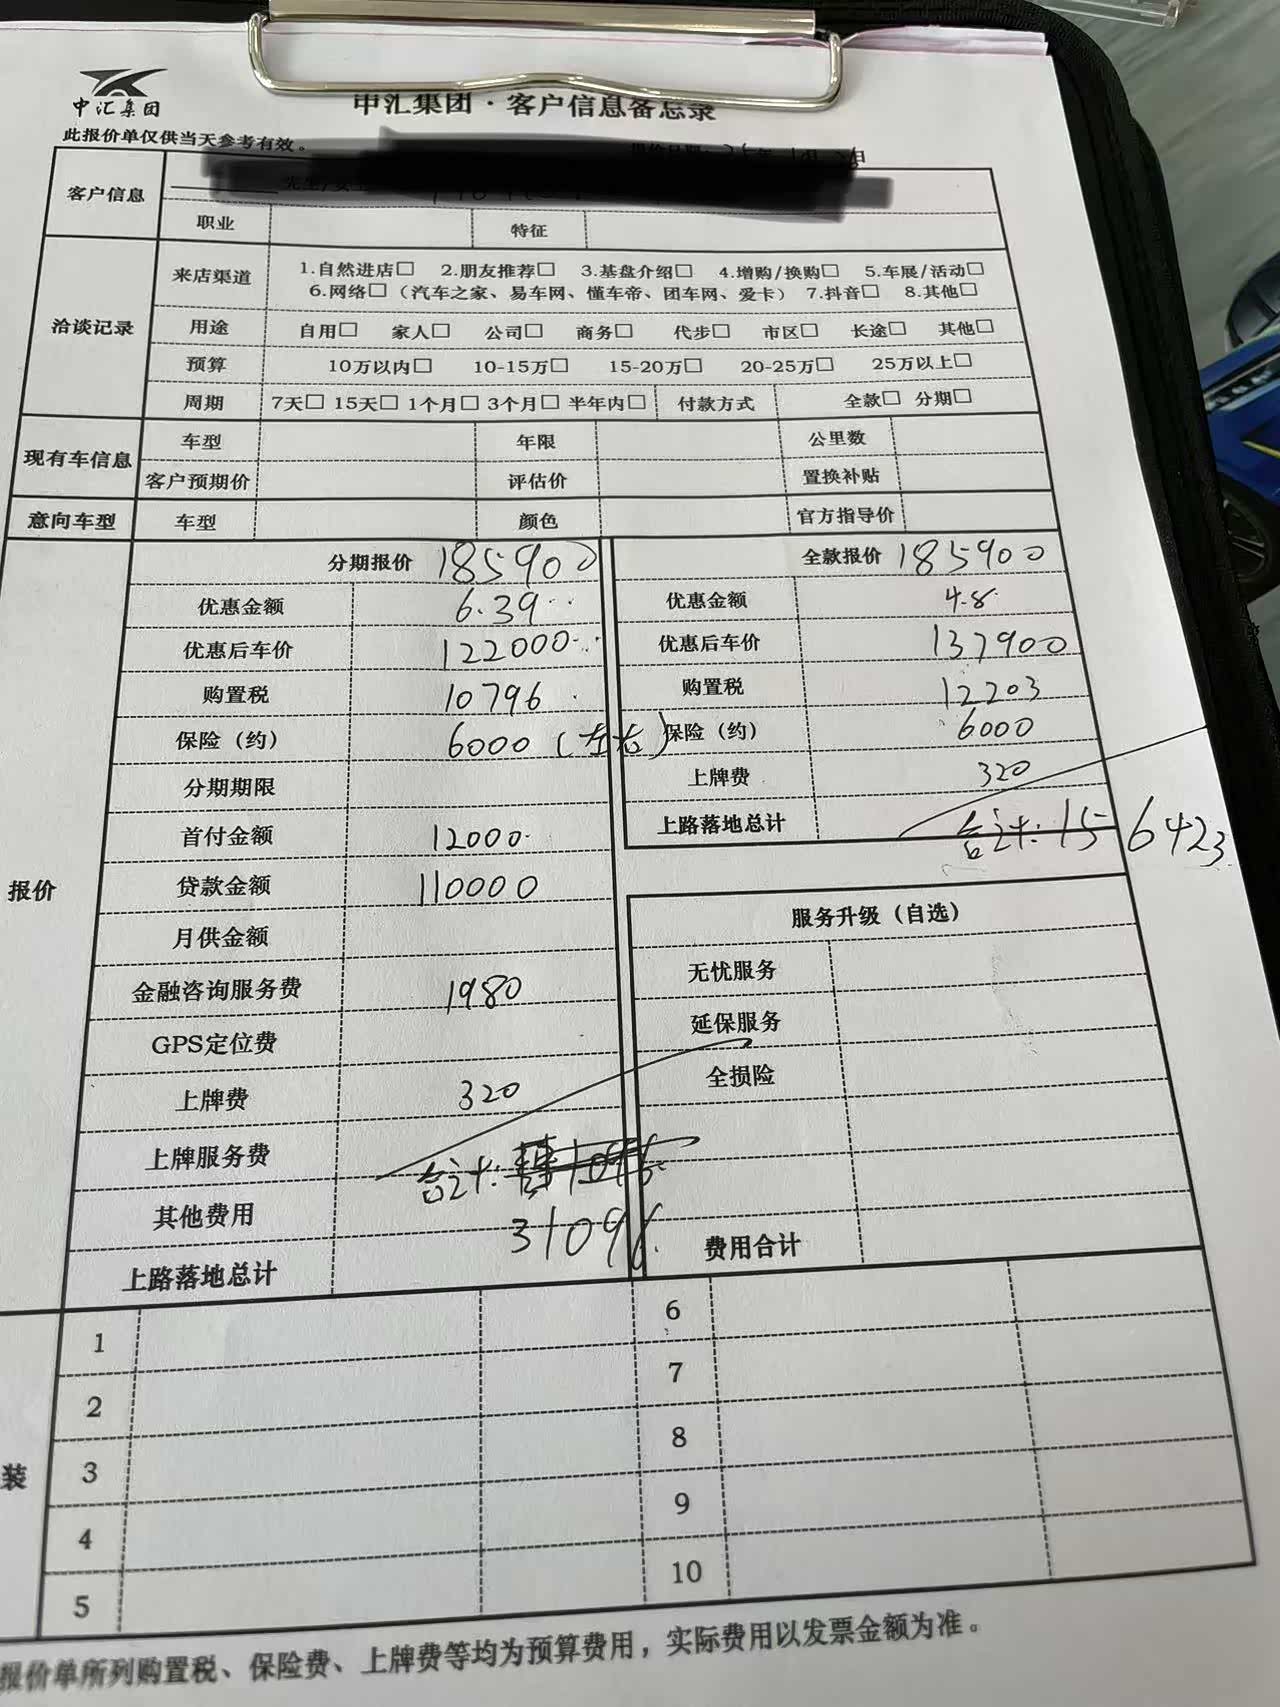 申汇集团
申汇集团·客户信息备忘录
此报价单仅供当天参考有效。
客户信息
职业 特征
洽谈记录
来店渠道 1.自然进店□ 2.朋友推荐□ 3.基盘介绍□ 4.增购/换购□ 5.车展/活动□
6.网络□（汽车之家、易车网、懂车帝、团车网、爱卡）7.抖音□ 8.其他□
用途 自用□ 家人□ 公司□ 商务□ 代步□ 市区□ 长途□ 其他□
预算 10万以内□ 10-15万□ 15-20万□ 20-25万□ 25万以上□
周期 7天□ 15天□ 1个月□ 3个月□ 半年内□ 付款方式 全款□ 分期□
现有车信息
车型 年限 公里数
客户预期价 评估价 置换补贴
意向车型 车型 颜色 官方指导价
报价
分期报价 185900
优惠金额 6.39
优惠后车价 122000
购置税 10796
保险（约） 6000（左右）
分期期限
首付金额 12000
贷款金额 110000
月供金额
金融咨询服务费 1980
GPS定位费
上牌费 320
上牌服务费
合计:
其他费用
31096
上路落地总计
全款报价 185900
优惠金额 4.8
优惠后车价 137900
购置税 12203
保险（约） 6000
上牌费 320
上路落地总计 合计:156423
服务升级（自选）
无忧服务
延保服务
全损险
费用合计
装
1 6
2 7
3 8
4 9
5 10
报价单所列购置税、保险费、上牌费等均为预算费用，实际费用以发票金额为准。